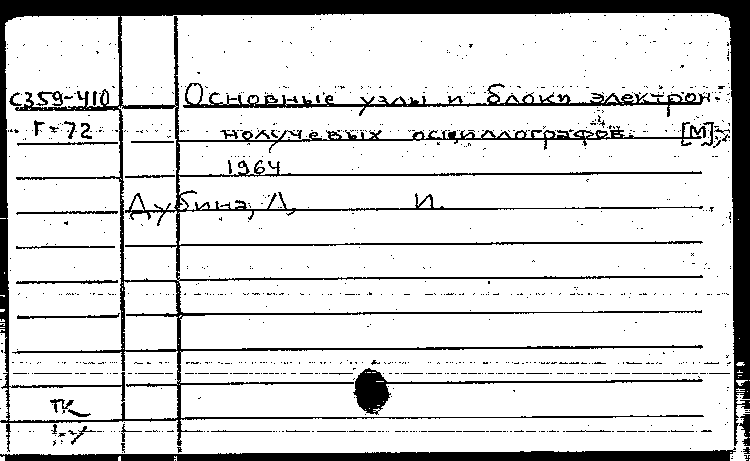 С359-410 Основные узлы и блоки электрон-
Г-72 нолучевых осциллографов. [М],
1964
Дубина, Л, И.
ТК